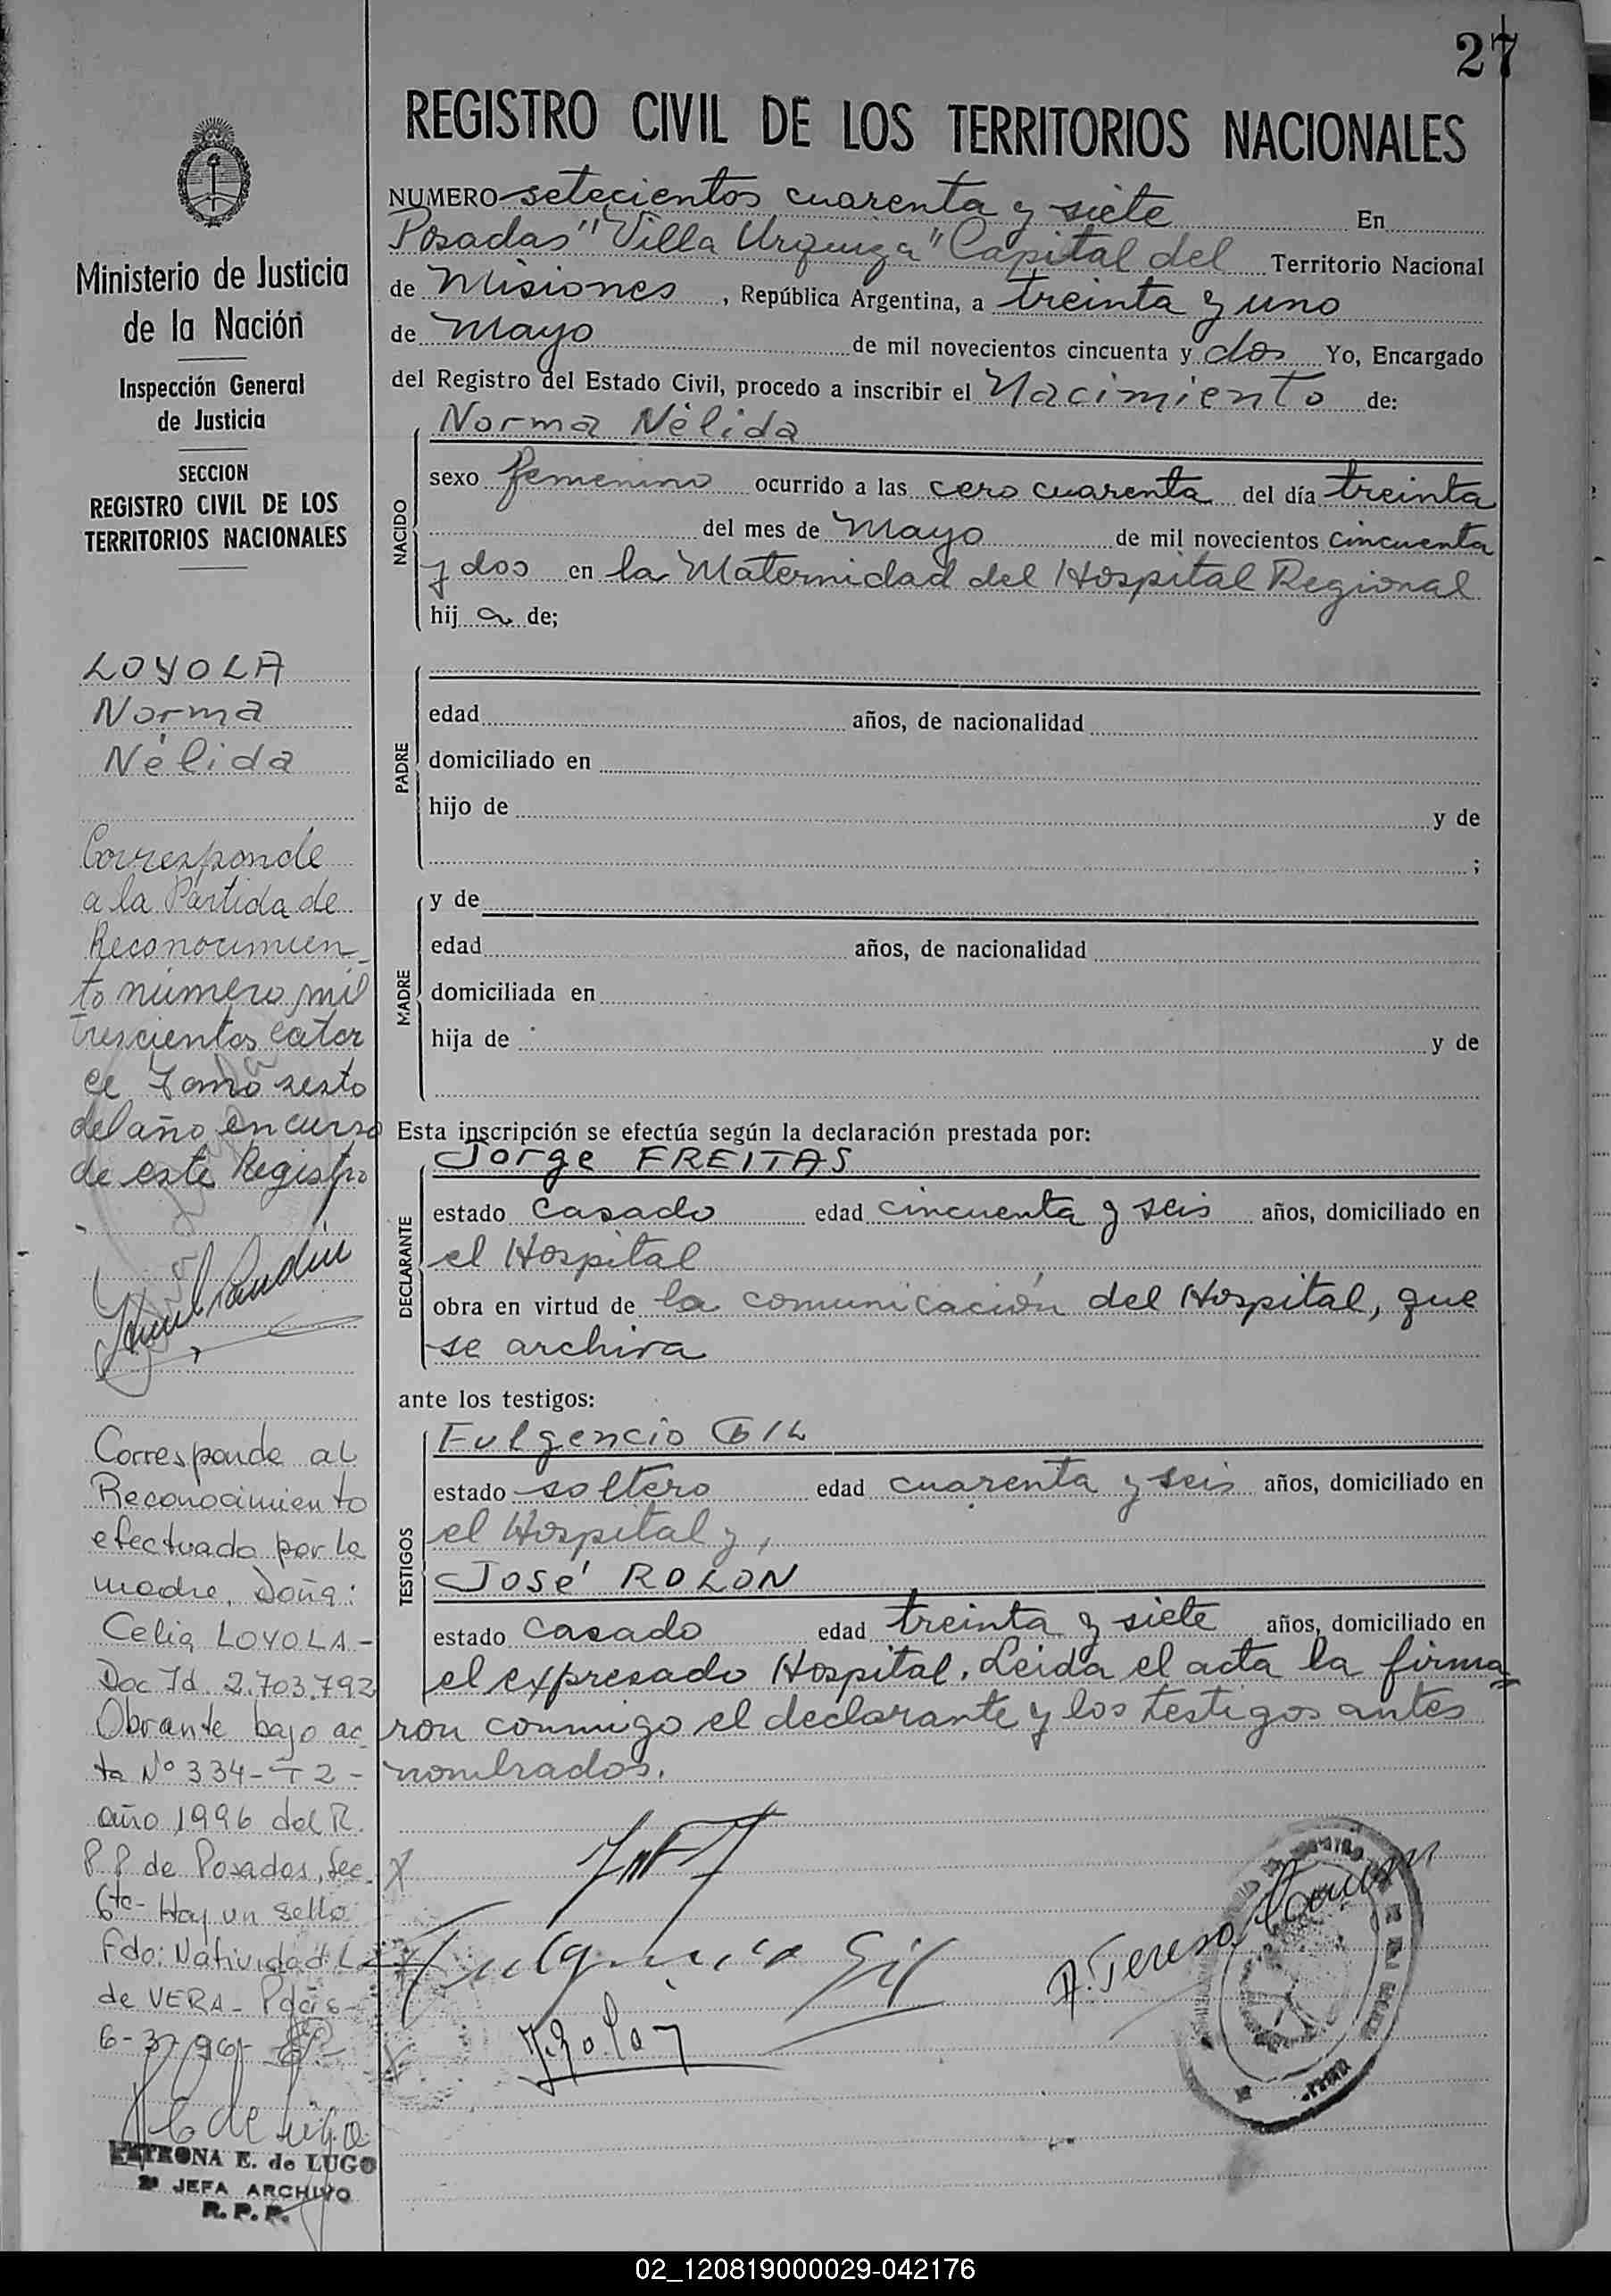 27
REGISTRO CIVIL DE LOS TERRITORIOS NACIONALES
NUMERO setecientos cuarenta y siete En
Posadas "Villa Urquiza" Capital del Territorio Nacional
de Misiones, República Argentina, a treinta y uno
de Mayo de mil novecientos cincuenta y dos Yo, Encargado
del Registro del Estado Civil, procedo a inscribir el Nacimiento de:
NACIDO
Norma Nélida
sexo femenino ocurrido a las cero cuarenta del día treinta
del mes de Mayo de mil novecientos cincuenta
y dos en la Maternidad del Hospital Regional
hij a de;
PADRE
edad años, de nacionalidad
domiciliado en
hijo de y de
;
MADRE
y de
edad años, de nacionalidad
domiciliada en
hija de y de
Esta inscripción se efectúa según la declaración prestada por:
DECLARANTE
Jorge FREITAS
estado casado edad cincuenta y seis años, domiciliado en
el Hospital
obra en virtud de la comunicación del Hospital, que
se archiva
ante los testigos:
TESTIGOS
Fulgencio GIL
estado soltero edad cuarenta y seis años, domiciliado en
el Hospital y,
José ROLON
estado casado edad treinta y siete años, domiciliado en
el expresado Hospital. Leida el acta la firma=
ron conmigo el declarante y los testigos antes
nombrados.
Fulgencio Gil
J. Rolon
Ministerio de Justicia
de la Nación
Inspección General
de Justicia
SECCION
REGISTRO CIVIL DE LOS
TERRITORIOS NACIONALES
LOYOLA
Norma
Nélida
Corresponde
a la Partida de
Reconocimien_
to número mil
trescientos cator
ce Tomo sesto
del año en curso
de este Registro
Corresponde al
Reconocimiento
efectuado por la
madre, Doña:
Celia LOYOLA-
Doc Id. 2.703.792
Obrante bajo ac_
ta Nº 334-T 2-
año 1996 del R.
P.P de Posadas, Sec.
6ta- Hay un sello
Fdo: Natividad L
de VERA- Pdas-
6-3-96-
PETRONA E. de LUGO
2º JEFA ARCHIVO
R. P. P.
02_120819000029-042176